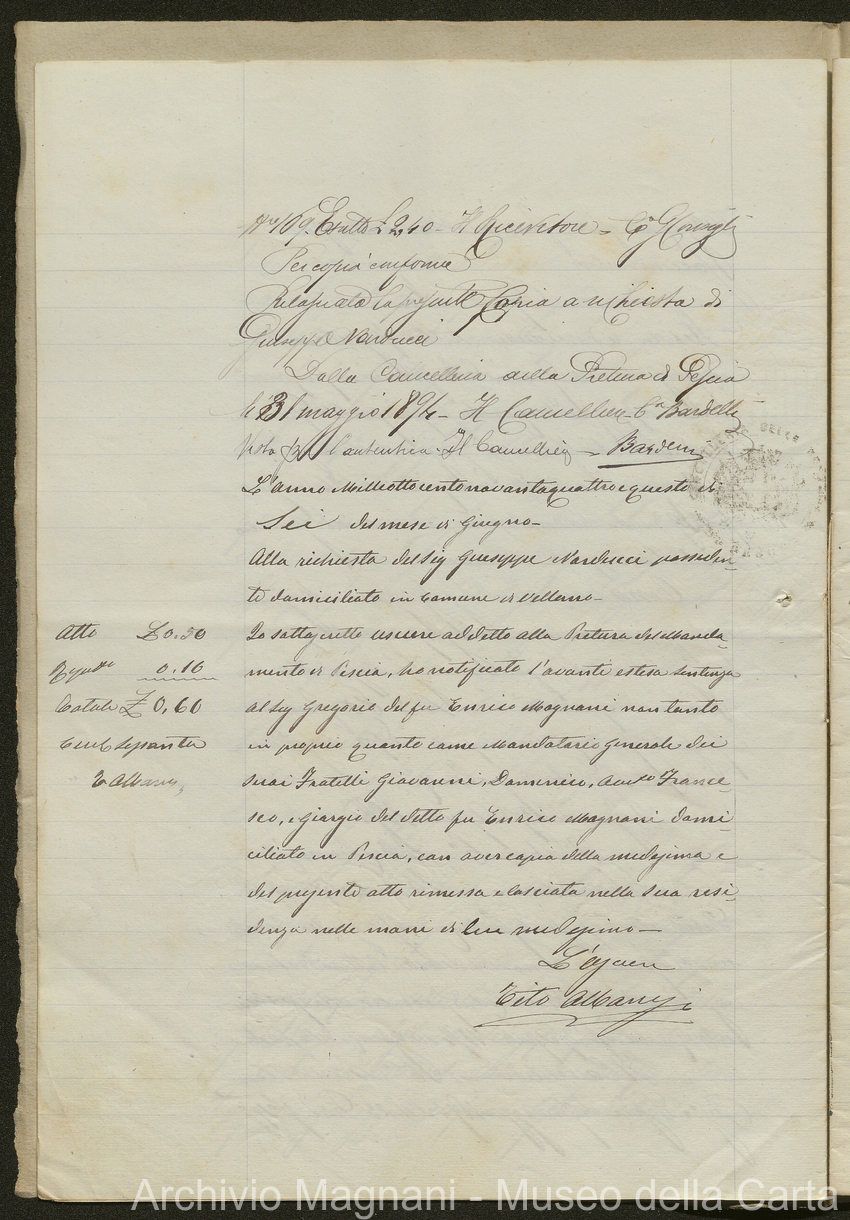 N° 169. Esatto £ 2,40 - Il Ricevitore -
Per copia conforme
Rilasciata la presente Copia a richiesta di
Giuseppe Narducci
Dalla Cancelleria della Pretura di Pescia
li 31 maggio 1894 - Il Cancelliere Bardelli
Visto per l'autentica. Il Cancelliere -
L'anno Milleottocentonovantaquattro e questo di
Sei del mese di Giugno -
Alla richiesta del Sig Giuseppe Narducci possiden-
te domiciliato in Comune di Vellano -
Atto £ 0.50
0.10
Totale £ 0,60
Cent. Sessanta
T Albany
Io sottoscritto usciere addetto alla Pretura del Manda-
mento di Pescia, ho notificato l'avanti estesa Sentenza
al Sig Gregorio del fu Enrico Magnani non tanto
in proprio quanto come Mandatario Generale dei
suoi Fratelli Giovanni, Domenico, France-
sco, e Giorgio del detto fu Enrico Magnani domi-
ciliato in Pescia, con aver copia della medesima e
del presente atto rimessa e lasciata nella sua resi-
denza nelle mani di lui medesimo -
L'usciere
Tito
Archivio Magnani - Museo della Carta